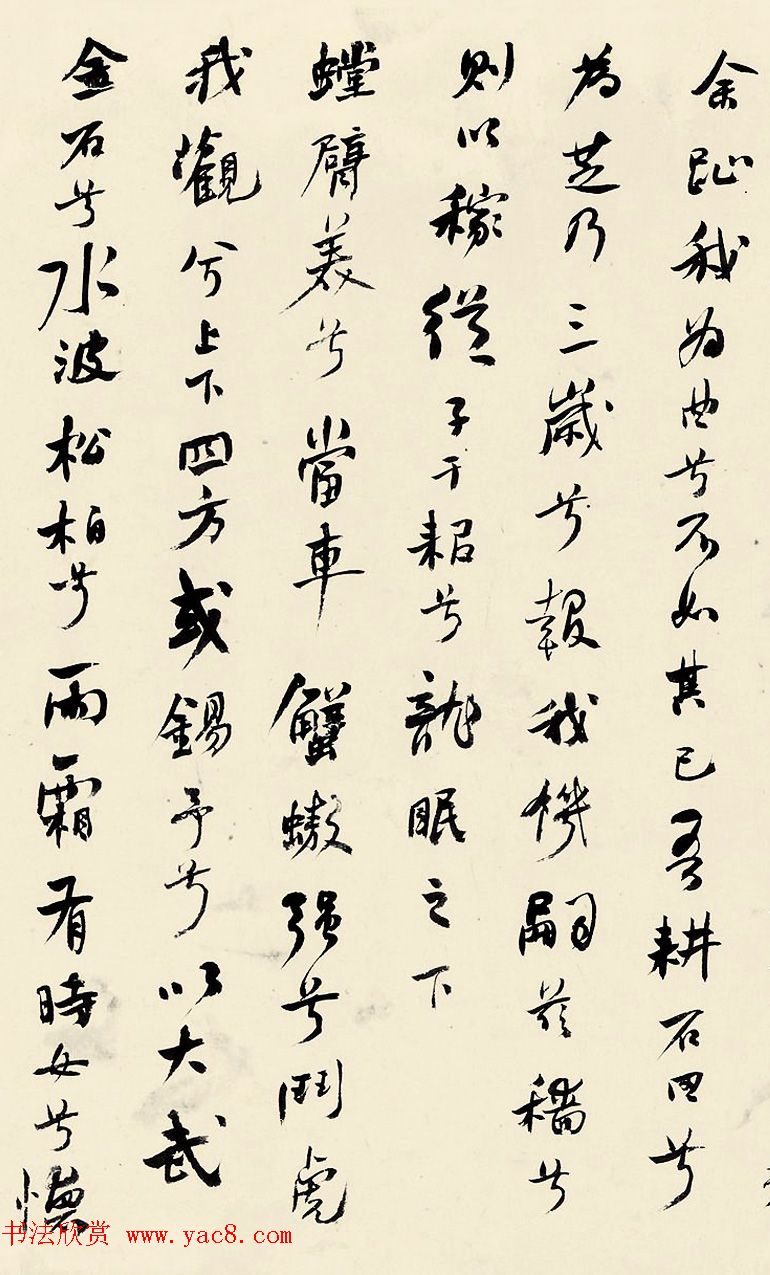 余我为曲兮不如其已吾耕石田兮
為芝乃三歲兮報我機嗣茲穡兮
則以稼從子于耜兮龍眠之下
螳臂美兮當車蟹螯强兮鬥虎
我觀兮上下四方或錫予兮以大武
金石兮水波松柏兮雨霜有時女兮懷
书法欣赏 www.yac8.com